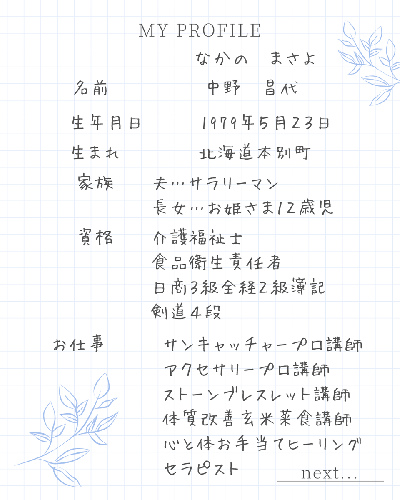 MY PROFILE
なかの まさよ
名前 中野 昌代
生年月日 1979年5月23日
生まれ 北海道本別町
家族 夫…サラリーマン
長女…お姫さま12歳児
資格 介護福祉士
食品衛生責任者
日商3級全経2級簿記
剣道4段
お仕事 サンキャッチャープロ講師
アクセサリープロ講師
ストーンブレスレット講師
体質改善玄米菜食講師
心と体お手当てヒーリング
セラピスト
next...